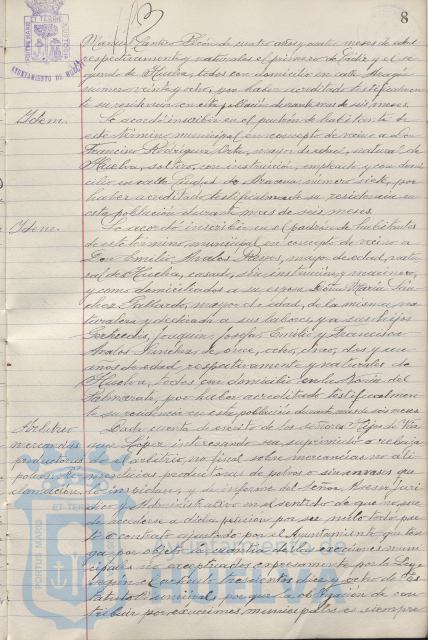 8
Manuel Castro Picón, de cuatro años y cuatro meses de edad
respectivamente y naturales el primero de Cádiz y el se-
gundo de Huelva, todos con domicilio en calle Aragón
numero veinte y ocho, por haber acreditado testificalmente
su residencia en esta población durante mas de seis meses.
Idem.
Se acordó inscribir en el padrón de habitantes de
este término municipal en concepto de vecino a Don
Francisco Rodríguez Orta, mayor de edad, natural de
Huelva, soltero, con instrucción, empleado y con domi-
cilio en calle Ciudad de Aracena número siete, por
haber acreditado testificalmente su residencia en
esta población durante mas de seis meses.
Idem.
Se acordó inscribir en el padrón de habitantes
de este término municipal en concepto de vecino a
Don Emilio Avalos Reyes, mayor de edad, natu-
ral de Huelva, casado, sin instrucción y marinero,
y como domiciliados a su esposa Doña María Sán-
chez Gallardo, mayor de edad, de la misma na-
turaleza y dedicada a sus labores, y a sus hijos
Joaquín, Josefa, Emilio y Francisco
Avalos Sánchez de once, ocho, cinco, dos y un
años de edad respectivamente y naturales de
Huelva, todos con domicilio en la
por haber acreditado testificalmente
su residencia en esta población durante mas de seis meses
Arbitrio
mercancías
productoras de
polvos.
Dada cuenta de escrito de los señores Hijos de
López interesando sea suprimido o rebaja-
do el arbitrio no fiscal sobre mercancías no ali-
menticias productoras de polvos o sin envases que
lo impidan, y de informe del Señor Asesor Jurí-
dico y Administrativo en el sentido de que no pue-
de accederse a dicha petición por ser nulo todo pac-
to o contrato ajustado por el Ayuntamiento que ten-
ga por objeto la cuantía de las exacciones muni-
cipales no aceptados expresamente por la Ley,
según el artículo trescientos diez y ocho del Es-
tatuto Municipal, porque la obligación de con-
tribuir por exacciones municipales es siempre
PORTUS MARIS
ET TERRAE
CUSTODIA
AYUNTAMIENTO DE HUELVA